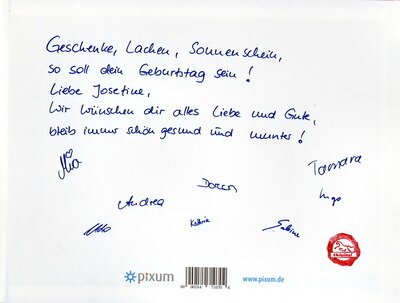 Geschenke, Lachen, Sonnenschein,
so soll dein Geburtstag sein!
Liebe Josefine,
Wir wünschen dir alles Liebe und Gute,
bleib immer schön gesund und munter!
Mia
Doreen
Tamara
Andrea
Ingo
Kathrin
Sabine
pixum
www.pixum.de